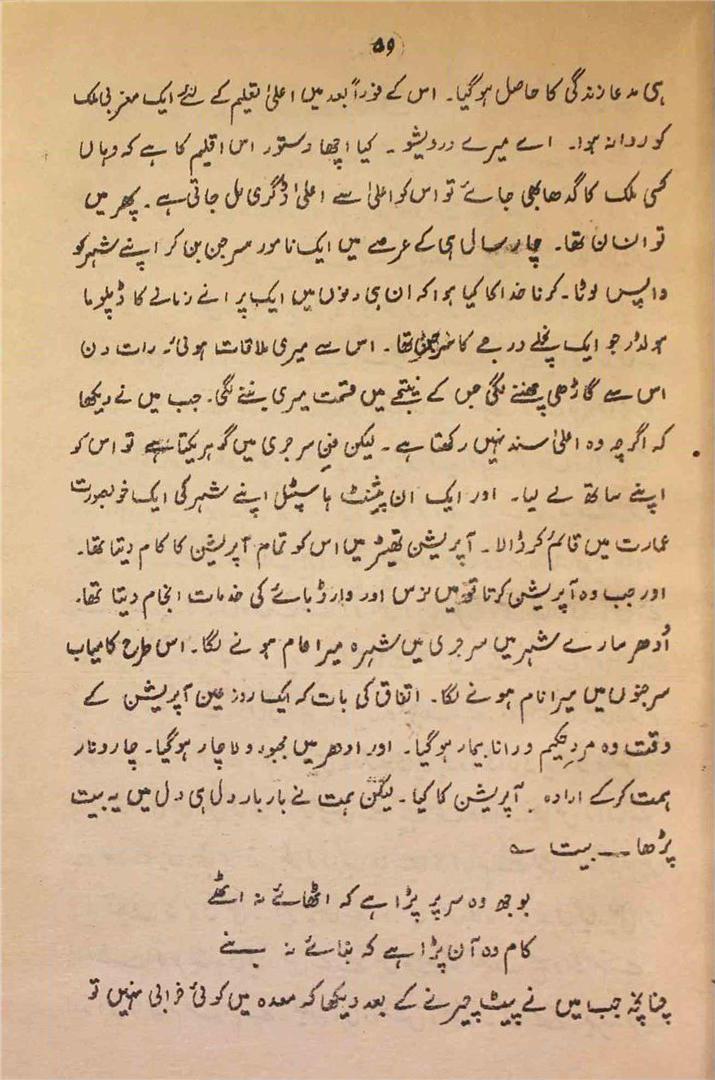 ۵۹
ہی مدعا زندگی کا حاصل ہوگیا۔ اس کے فوراً بعد میں اعلیٰ تعلیم کے لئے ایک مغربی ملک
کو روانہ ہوا۔ اے میرے درویشو۔ کیا اچھا دستور اس اقلیم کا ہے کہ وہاں
کسی ملک کا گدھا بھی جائے تو اس کو اعلیٰ سے اعلیٰ ڈگری مل جاتی ہے۔ پھر میں
تو انسان تھا۔ چار سال ہی کے عرصے میں ایک نامور سرجن بن کر اپنے شہر کو
واپس لوٹا۔ کرنا خدا کا کیا ہوا کہ ان ہی دنوں میں ایک پرانے زمانے کا ڈپلوما
ہولڈر جو ایک نچلے درجے کا سرجن تھا۔ اس سے میری ملاقات ہوئی۔ رات دن
اس سے گاڑھی چھننے لگی جس کے نتیجے میں قسمت میری بننے لگی۔ جب میں نے دیکھا
کہ اگرچہ وہ اعلیٰ سند نہیں رکھتا ہے۔ لیکن فنِ سرجری میں گوہر یکتا ہے تو اس کو
اپنے ساتھ لے لیا۔ اور ایک ان پیشنٹ ہاسپٹل اپنے شہر کی ایک خوبصورت
عمارت میں قائم کر ڈالا۔ آپریشن تھیٹر میں اس کو تمام آپریشن کا کام دیتا تھا۔
اور جب وہ آپریشن کرتا تو میں نرس اور وارڈ بائے کی خدمات انجام دیتا تھا۔
اُدھر سارے شہر میں سرجری میں شہرہ میرا عام ہونے لگا۔ اس طرح کامیاب
سرجنوں میں میرا نام ہونے لگا۔ اتفاق کی بات کہ ایک روز عین آپریشن کے
وقت وہ مردِ حکیم و دانا بیمار ہوگیا۔ اور ادھر میں مجبور و لاچار ہوگیا۔ چار و ناچار
ہمت کرکے ارادہ آپریشن کا کیا۔ لیکن ہمت نے بار بار دل ہی دل میں یہ بیت
پڑھا ـــ بیت ؎
بوجھ وہ سر پر پڑا ہے کہ اٹھائے نہ اٹھے
کام وہ آن پڑا ہے کہ بنائے نہ بنے
چنانچہ جب میں نے پیٹ چیرنے کے بعد دیکھا کہ معدہ میں کوئی خرابی نہیں تو